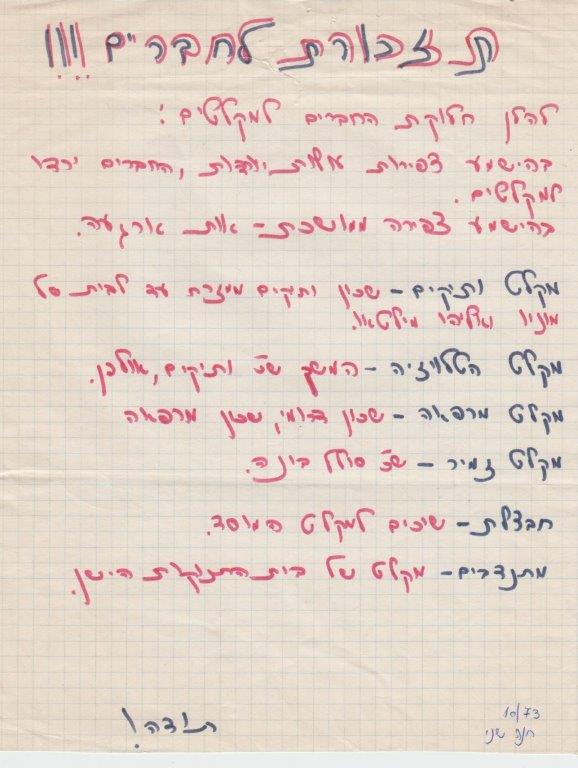 תזכורת לחברים !!!!
להלן חלוקת החברים למקלטים:
בהישמע צפירות עולות ויורדות, החברים ירדו
למקלטים.
בהישמע צפירה ממושכת - אות ארגעה.
מקלט ותיקים - שכון ותיקים מזרח עד לבית של
מוניו
מקלט הטלויזיה - המשך שכ' ותיקים, אולפן.
מקלט מרפאה - שכון דרומי, שכון מרפאה
מקלט זמיר - שכ' סולל בינה.
חבצלת - שיכים למקלט המוסד.
מתנדבים - מקלט של בית התינוקות הישן.
תודה!
10/73
חנה שני